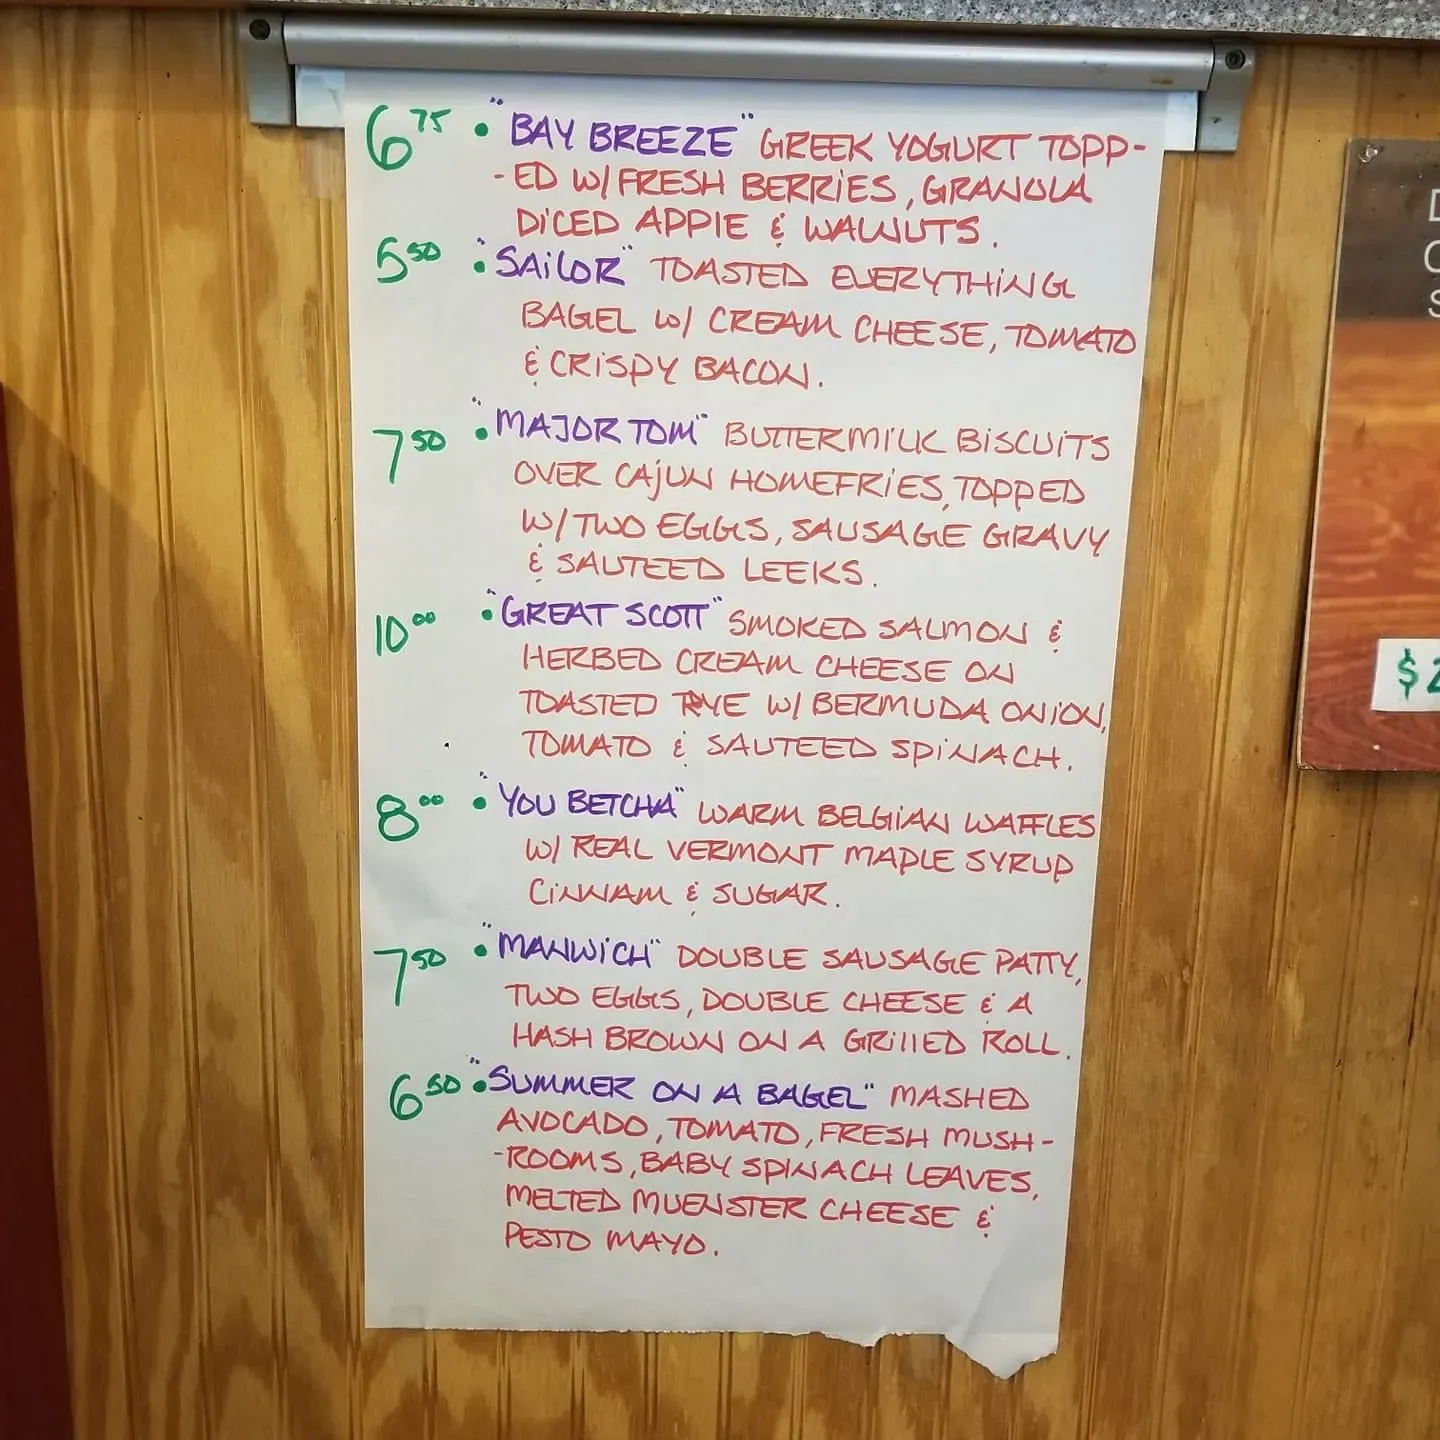 6 75 • "BAY BREEZE" GREEK YOGURT TOPP-
-ED W/ FRESH BERRIES, GRANOLA
DICED APPLE & WALNUTS.
5 50 • "SAILOR" TOASTED EVERYTHING
BAGEL W/ CREAM CHEESE, TOMATO
& CRISPY BACON.
7 50 • "MAJOR TOM" BUTTERMILK BISCUITS
OVER CAJUN HOMEFRIES, TOPPED
W/ TWO EGGS, SAUSAGE GRAVY
& SAUTEED LEEKS.
10 00 • "GREAT SCOTT" SMOKED SALMON &
HERBED CREAM CHEESE ON
TOASTED RYE W/ BERMUDA ONION,
TOMATO & SAUTEED SPINACH.
8 00 • "YOU BETCHA" WARM BELGIAN WAFFLES
W/ REAL VERMONT MAPLE SYRUP
CINNAM & SUGAR.
7 50 • "MANWICH" DOUBLE SAUSAGE PATTY,
TWO EGGS, DOUBLE CHEESE & A
HASH BROWN ON A GRILLED ROLL.
6 50 • "SUMMER ON A BAGEL" MASHED
AVOCADO, TOMATO, FRESH MUSH-
-ROOMS, BABY SPINACH LEAVES,
MELTED MUENSTER CHEESE &
PESTO MAYO.
$2